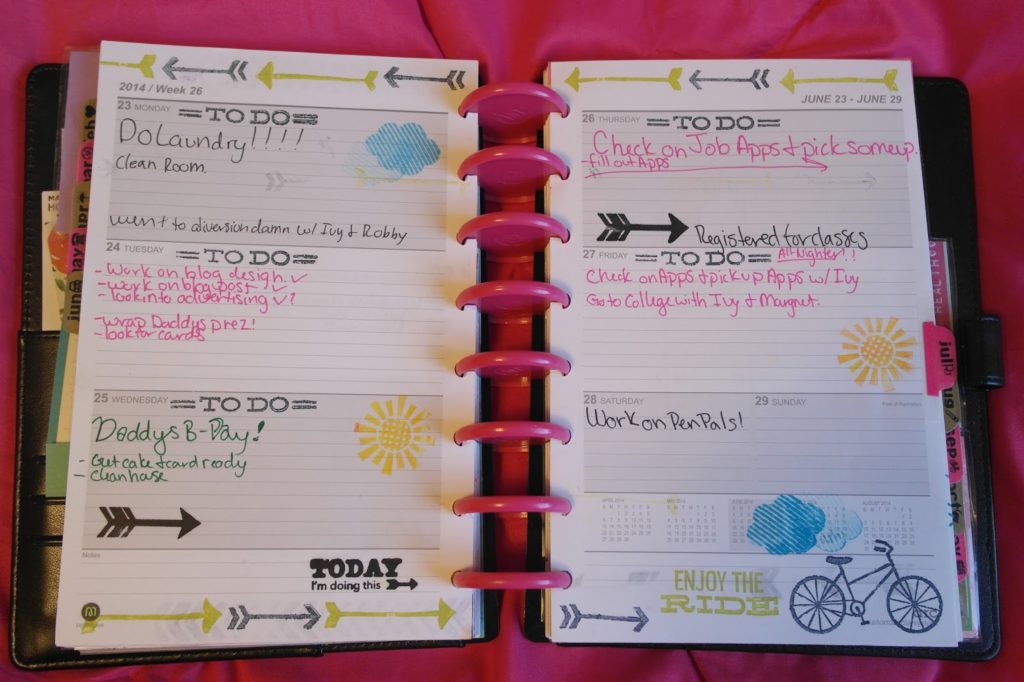 2014 / Week 26
23 MONDAY
TO DO
Do Laundry!!!!
Clean Room.
went to diversion damn w/ Ivy & Robby
24 TUESDAY
TO DO
- Work on blog design ✓
- work on blog post 1 ✓
- look into advertising ✓?
- wrap Daddys prez!
- look for cards
25 WEDNESDAY
TO DO
Daddys B-Day!
- Get cake & card ready
- clean house
Notes
TODAY
I'm doing this
JUNE 23 - JUNE 29
26 THURSDAY
TO DO
Check on Job Apps & pick some up.
- fill out Apps
Registered for classes
27 FRIDAY
TO DO
All-Nighter!!
Check on Apps & pick up Apps w/ Ivy
Go to College with Ivy & Margret.
28 SATURDAY
29 SUNDAY
Work on Pen Pals!
APRIL 2014
MAY 2014
JUNE 2014
AUGUST 2014
ENJOY THE
RIDE
jul